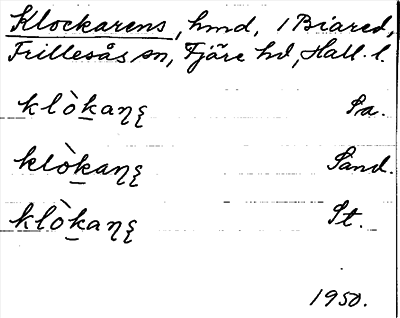 Klockarens, hmd, i Biared,
Frillesås sn, Fjäre hd, Hall. l.
klò̱kaɳξ Pa.
klò̱kaɳξ Sand.
klò̱kaɳξ St.
1950.